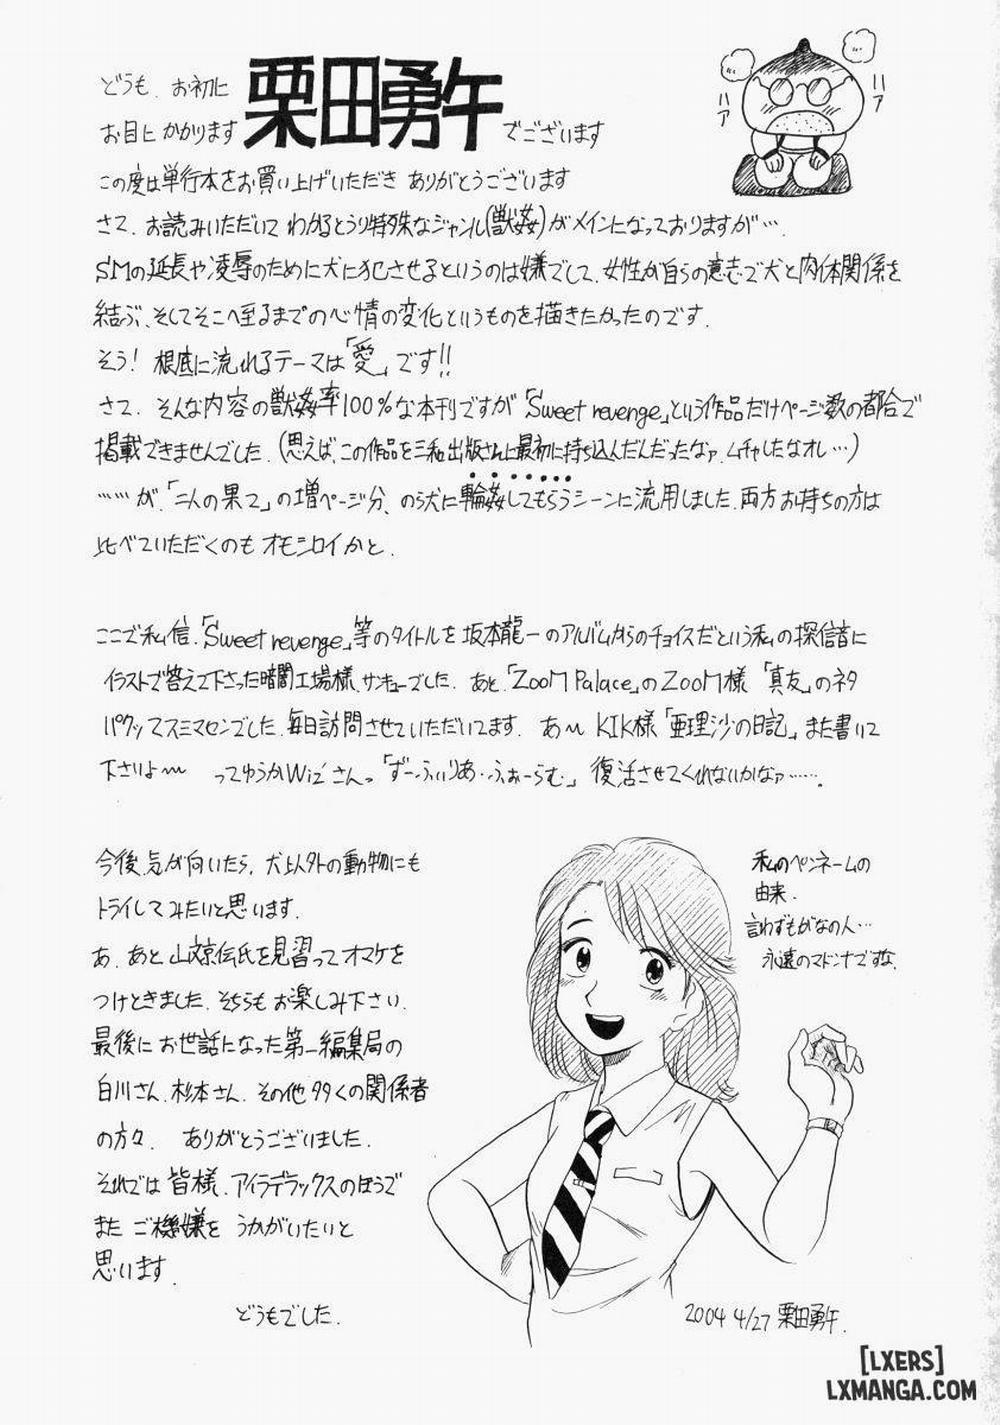 どうも、お初に
お目にかかります
栗田勇午
でございます
ハア
ハア
この度は単行本をお買い上げいただき ありがとうございます
さて、お読みいただいて わかるとうり特殊なジャンル(獣姦)がメインになっておりますが…
SMの延長や凌辱のために犬に犯させるというのは嫌でして、女性が自らの意志で犬と肉体関係を
結ぶ、そしてそこへ至るまでの心情の変化というものを描きたかったのです.
そう! 根底に流れるテーマは「愛」です!!
さて、そんな内容の獣姦率100%な本刊ですが「Sweet revenge」という作品だけページ数の都合で
掲載できませんでした.(思えば、この作品を三和出版さんに最初に持ち込んだんだったなァ.ムチャしたなオレ…)
……が、「二人の果て」の増ページ分、のら犬に輪姦してもらうシーンに流用しました.両方お持ちの方は
比べていただくのもオモシロイかと.
ここで私信.「Sweet revenge」等のタイトルを坂本龍一のアルバムからのチョイスだという私の探信音に
イラストで答えて下さった暗闇工場様、サンキューでした. あと「ZOOM Palace」のZOOM様 「真友」のネタ
パクッてスミマセンでした.毎日訪問させていただいてます. あ〜 KIK様「亜理沙の日記」また書いて
下さいよ〜 ってゆうかWiz'さんっ「ずーふぃりあ・ふぉーらむ」 復活させてくれないかなァ…….
今後、気が向いたら、犬以外の動物にも
トライしてみたいと思います.
あ、あと 山文京伝氏を見習ってオマケを
つけときました.そちらも お楽しみ下さい.
最後に お世話になった第一編集局の
白川さん、杉本さん、その他 多くの関係者
の方々、 ありがとうございました.
それでは 皆様、アイラデラックスのほうで
また ご機嫌を うかがいたいと
思います.
どうもでした.
私のペンネームの
由来.
言わずもがなの人…
永遠のマドンナですな.
2004 4/27 栗田勇午.
[LXERS]
LXMANGA.COM